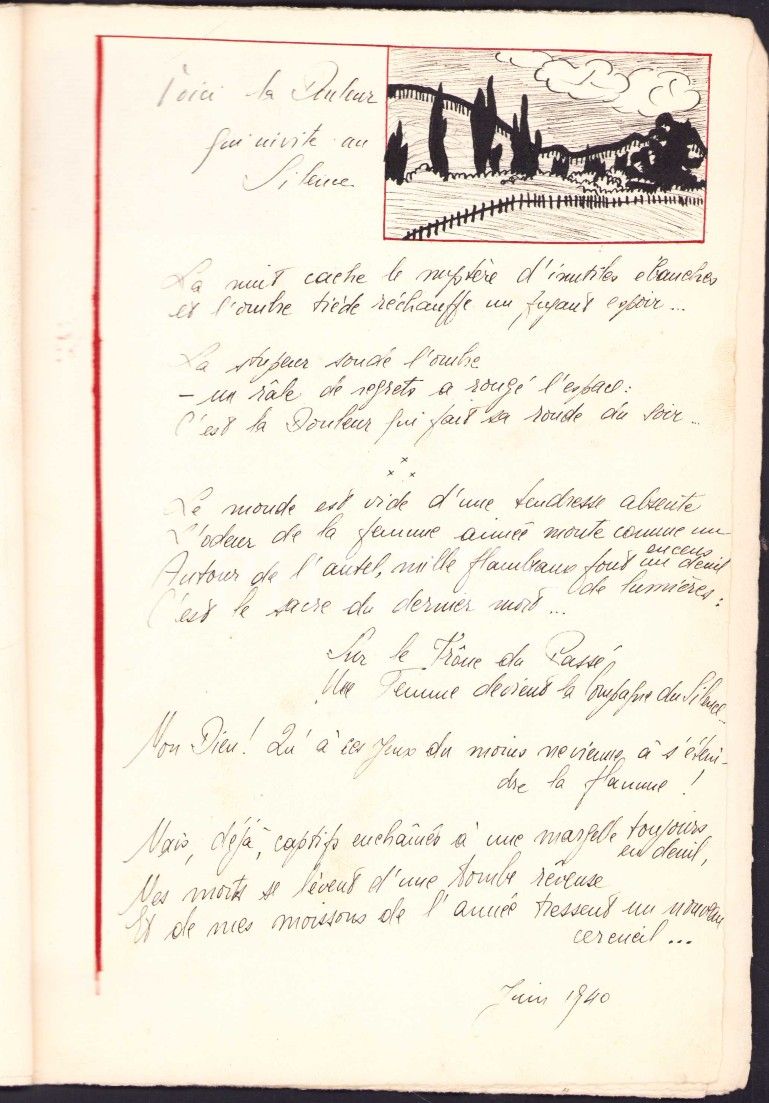 Voici la Douleur
qui invite au
Silence
La nuit cache le mystère d'inutiles ebauches
et l'ombre tiède réchauffe un fuyant espoir...
La stupeur sonde l'ombre
- un râle de regrets a rongé l'espace:
C'est la Douleur qui fait sa ronde du soir...
x
x x
Le monde est vide d'une tendresse absente
L'odeur de la femme aimée monte comme un
encens
Autour de l'autel, mille flambeaux font un deuil
de lumières:
C'est le sacre du dernier mort...
Sur le Trône du Passé
Une Femme devient la Compagne du Silence...
Mon Dieu! Qu'à ces Jeux du moins ne vienne à s'étein-
dre la flamme!
Mais, déjà, captifs enchaînés à une margelle toujours
en deuil,
Mes morts se lèvent d'une tombe rêveuse
Et de mes moissons de l'année tressent un nouveau
cercueil...
Juin 1940